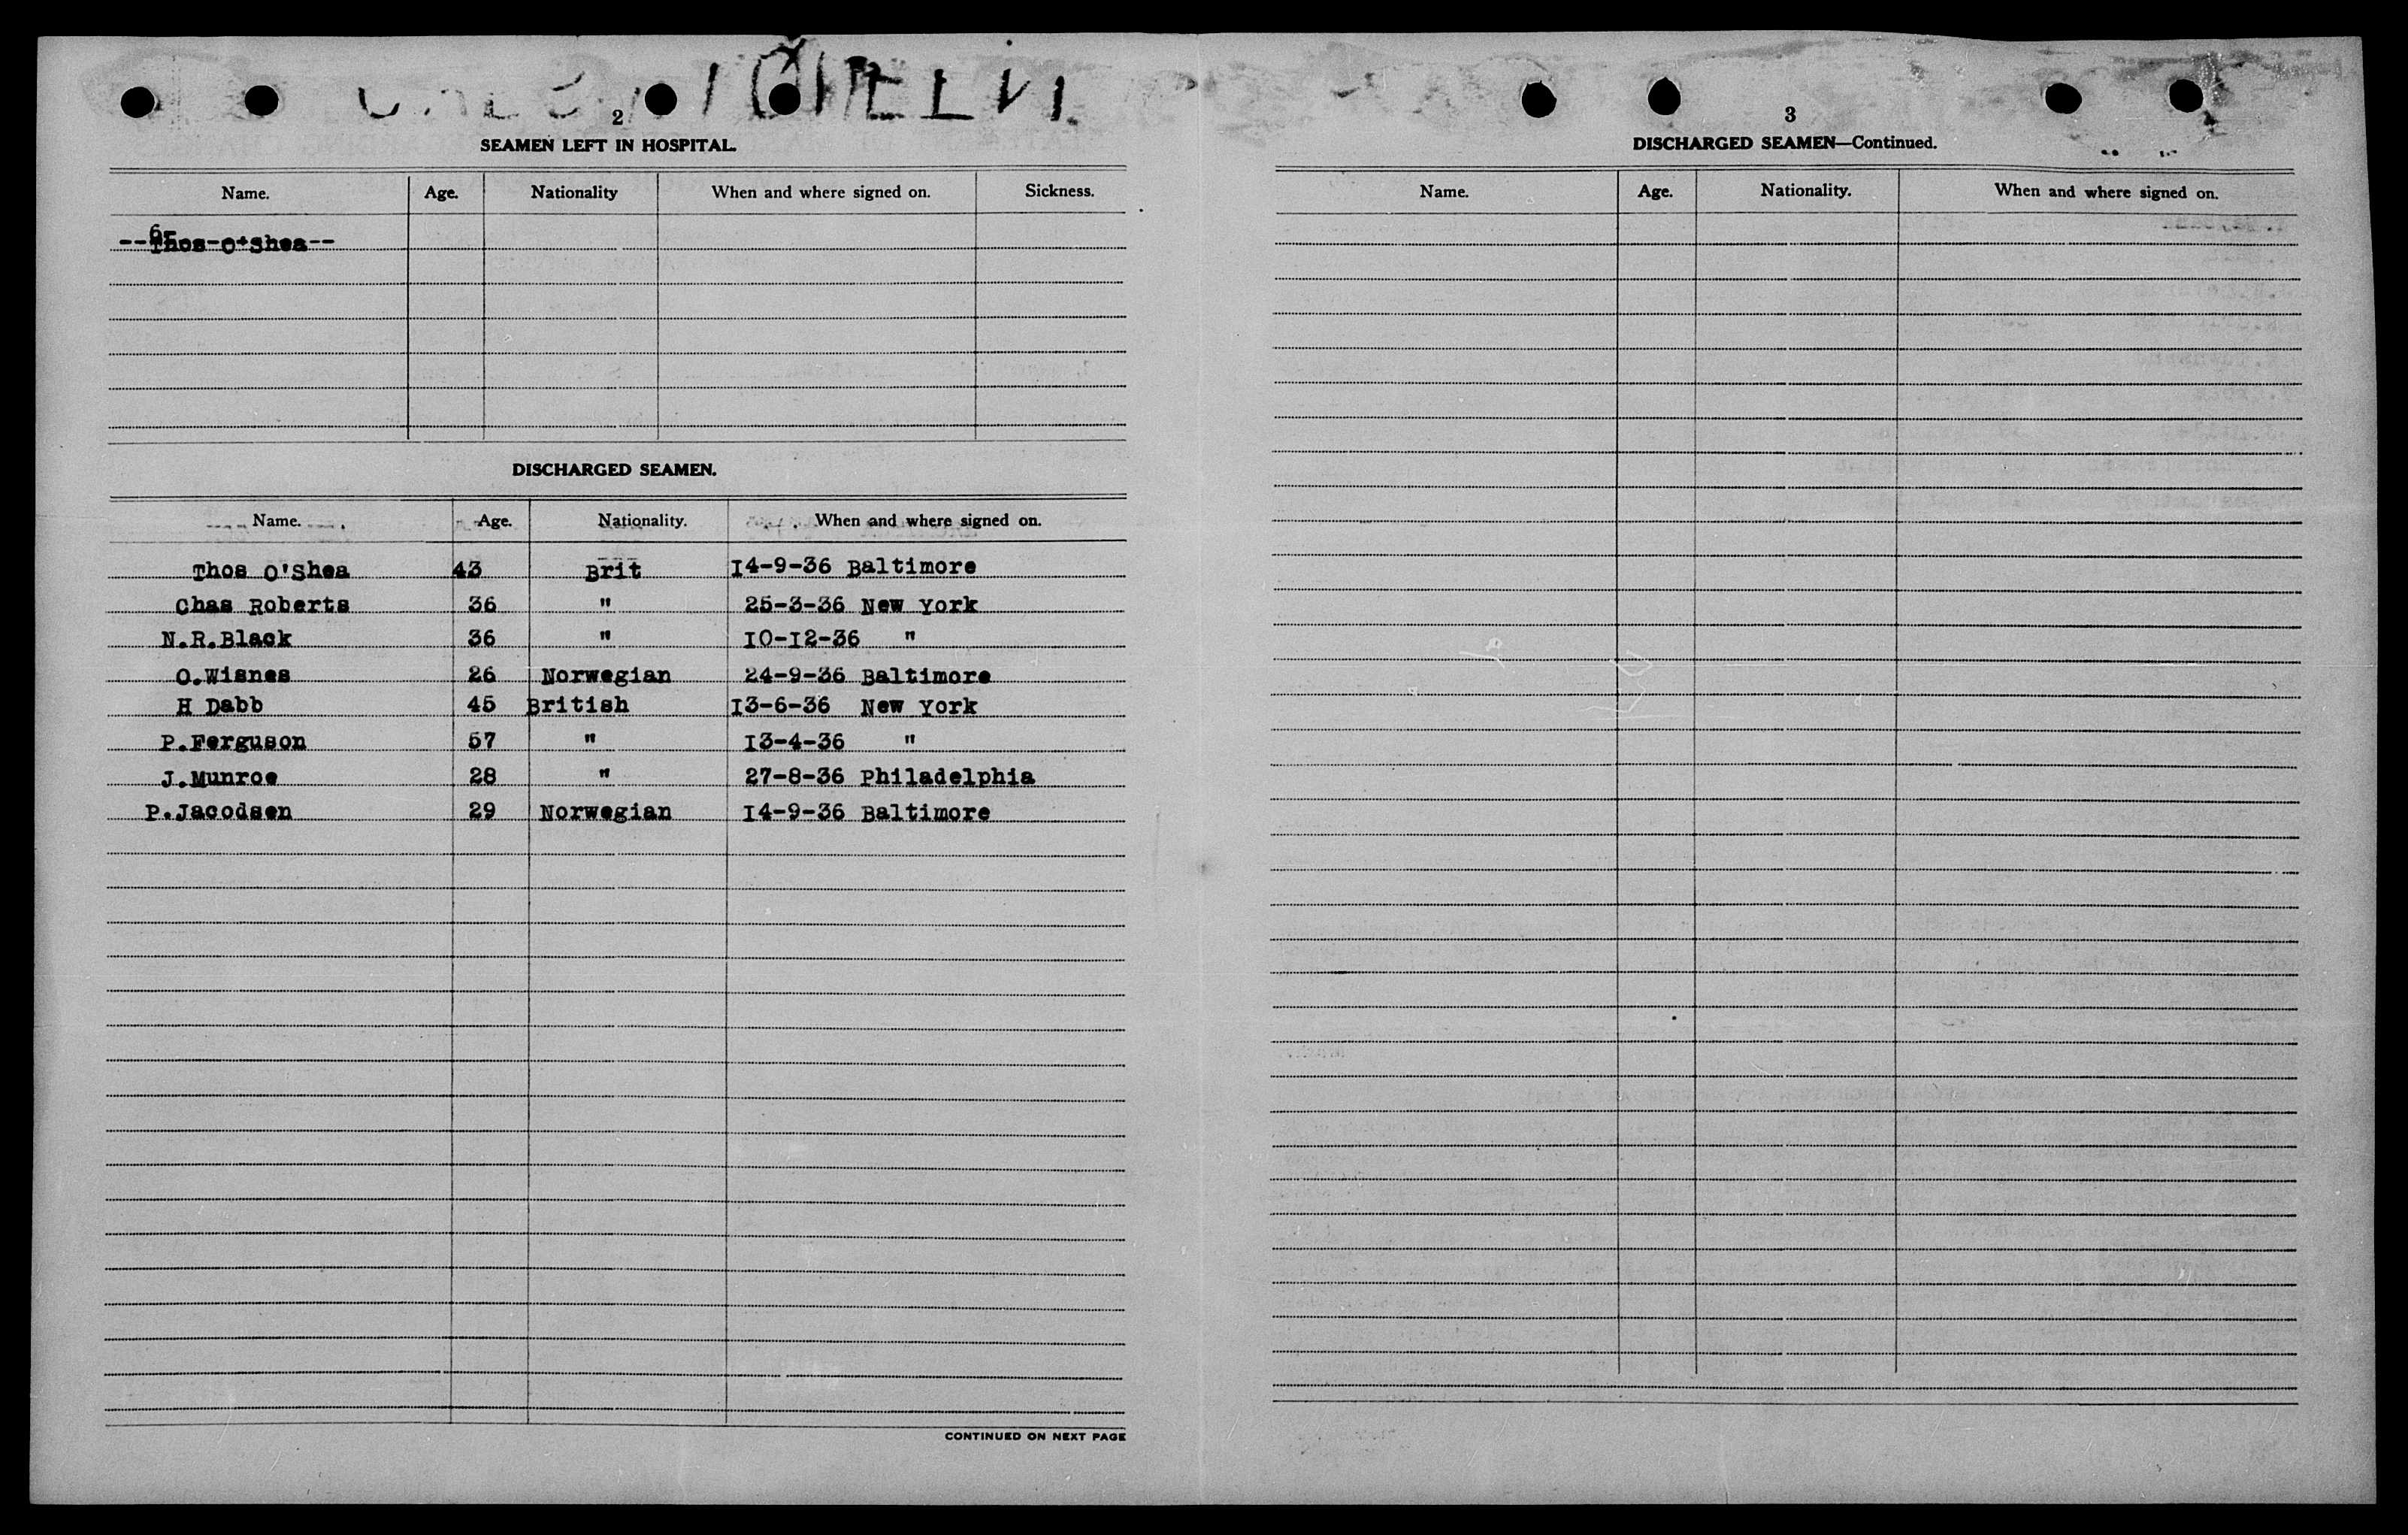 2
SEAMEN LEFT IN HOSPITAL.
Name. Age. Nationality When and where signed on. Sickness.
--Thos-O'Shea--
DISCHARGED SEAMEN.
Name. Age. Nationality. When and where signed on.
Thos O'Shea 43 Brit 14-9-36 Baltimore
Chas Roberts 36 " 25-3-36 New York
N.R.Black 36 " 10-12-36 "
O.Wisnes 26 Norwegian 24-9-36 Baltimore
H Dabb 45 British 13-6-36 New York
P.Ferguson 57 " 13-4-36 "
J.Munroe 28 " 27-8-36 Philadelphia
P.Jacodsen 29 Norwegian 14-9-36 Baltimore
CONTINUED ON NEXT PAGE
3
DISCHARGED SEAMEN—Continued.
Name. Age. Nationality. When and where signed on.